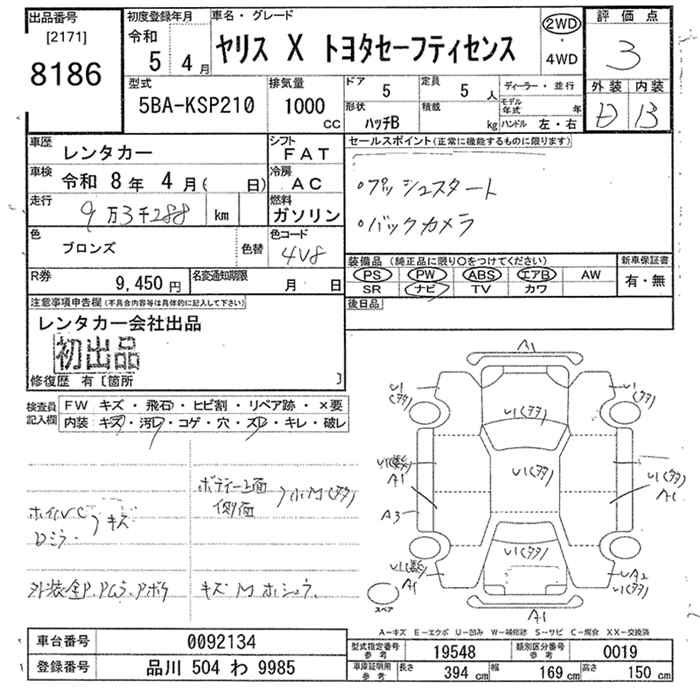 出品番号
[2171]
8186
初度登録年月
令和
5 4月
車名・グレード
ヤリス X トヨタセーフティセンス
2WD
・
4WD
評価点
3
型式
5BA-KSP210
排気量
1000
CC
ドア 5
定員 5 人
形状
ハッチB
積載
kg
ディーラー・並行
モデル年式 年
ハンドル 左・右
外装 内装
B
車歴
レンタカー
シフト
FAT
車検 令和 8年 4月( 日)
冷房
AC
走行
9万3千288 km
燃料
ガソリン
色
ブロンズ
色替
色コード
4V8
R券
9,450円
名変通知期限
月 日
セールスポイント(正常に機能するものに限ります)
○プッシュスタート
○バックカメラ
装備品(純正品に限り○をつけてください)
新車保証書
PS PW ABS エアB AW
SR ナビ TV カワ
有・無
後日品
注意事項申告欄(不具合内容等は具体的に記入して下さい)
レンタカー会社出品
初出品
修復歴 有〔箇所 〕
検査員
記入欄
FW キズ・飛石・ヒビ割・リペア跡・×要
内装 キズ・汚レ・コゲ・穴・スレ・キレ・破レ
ボディー上面
側面
小M(タタ)
キズ
Dミラー
キズM
A1
U1
(タタ)
U1
(タタ)
U1(タタ)
U1(タタ)
A1
U1(タタ)
A3
U1(タタ)
A1
UA2
U1(タタ)
スペア
A1
A-キズ E-エクボ U-凹み W-補修跡 S-サビ C-腐食 XX-交換済
車台番号 0092134
登録番号 品川 504 わ 9985
型式指定番号
参考
19548
類別区分番号
参考
0019
車庫証明用
参考
長さ 394 cm
幅 169 cm
高さ 150 cm